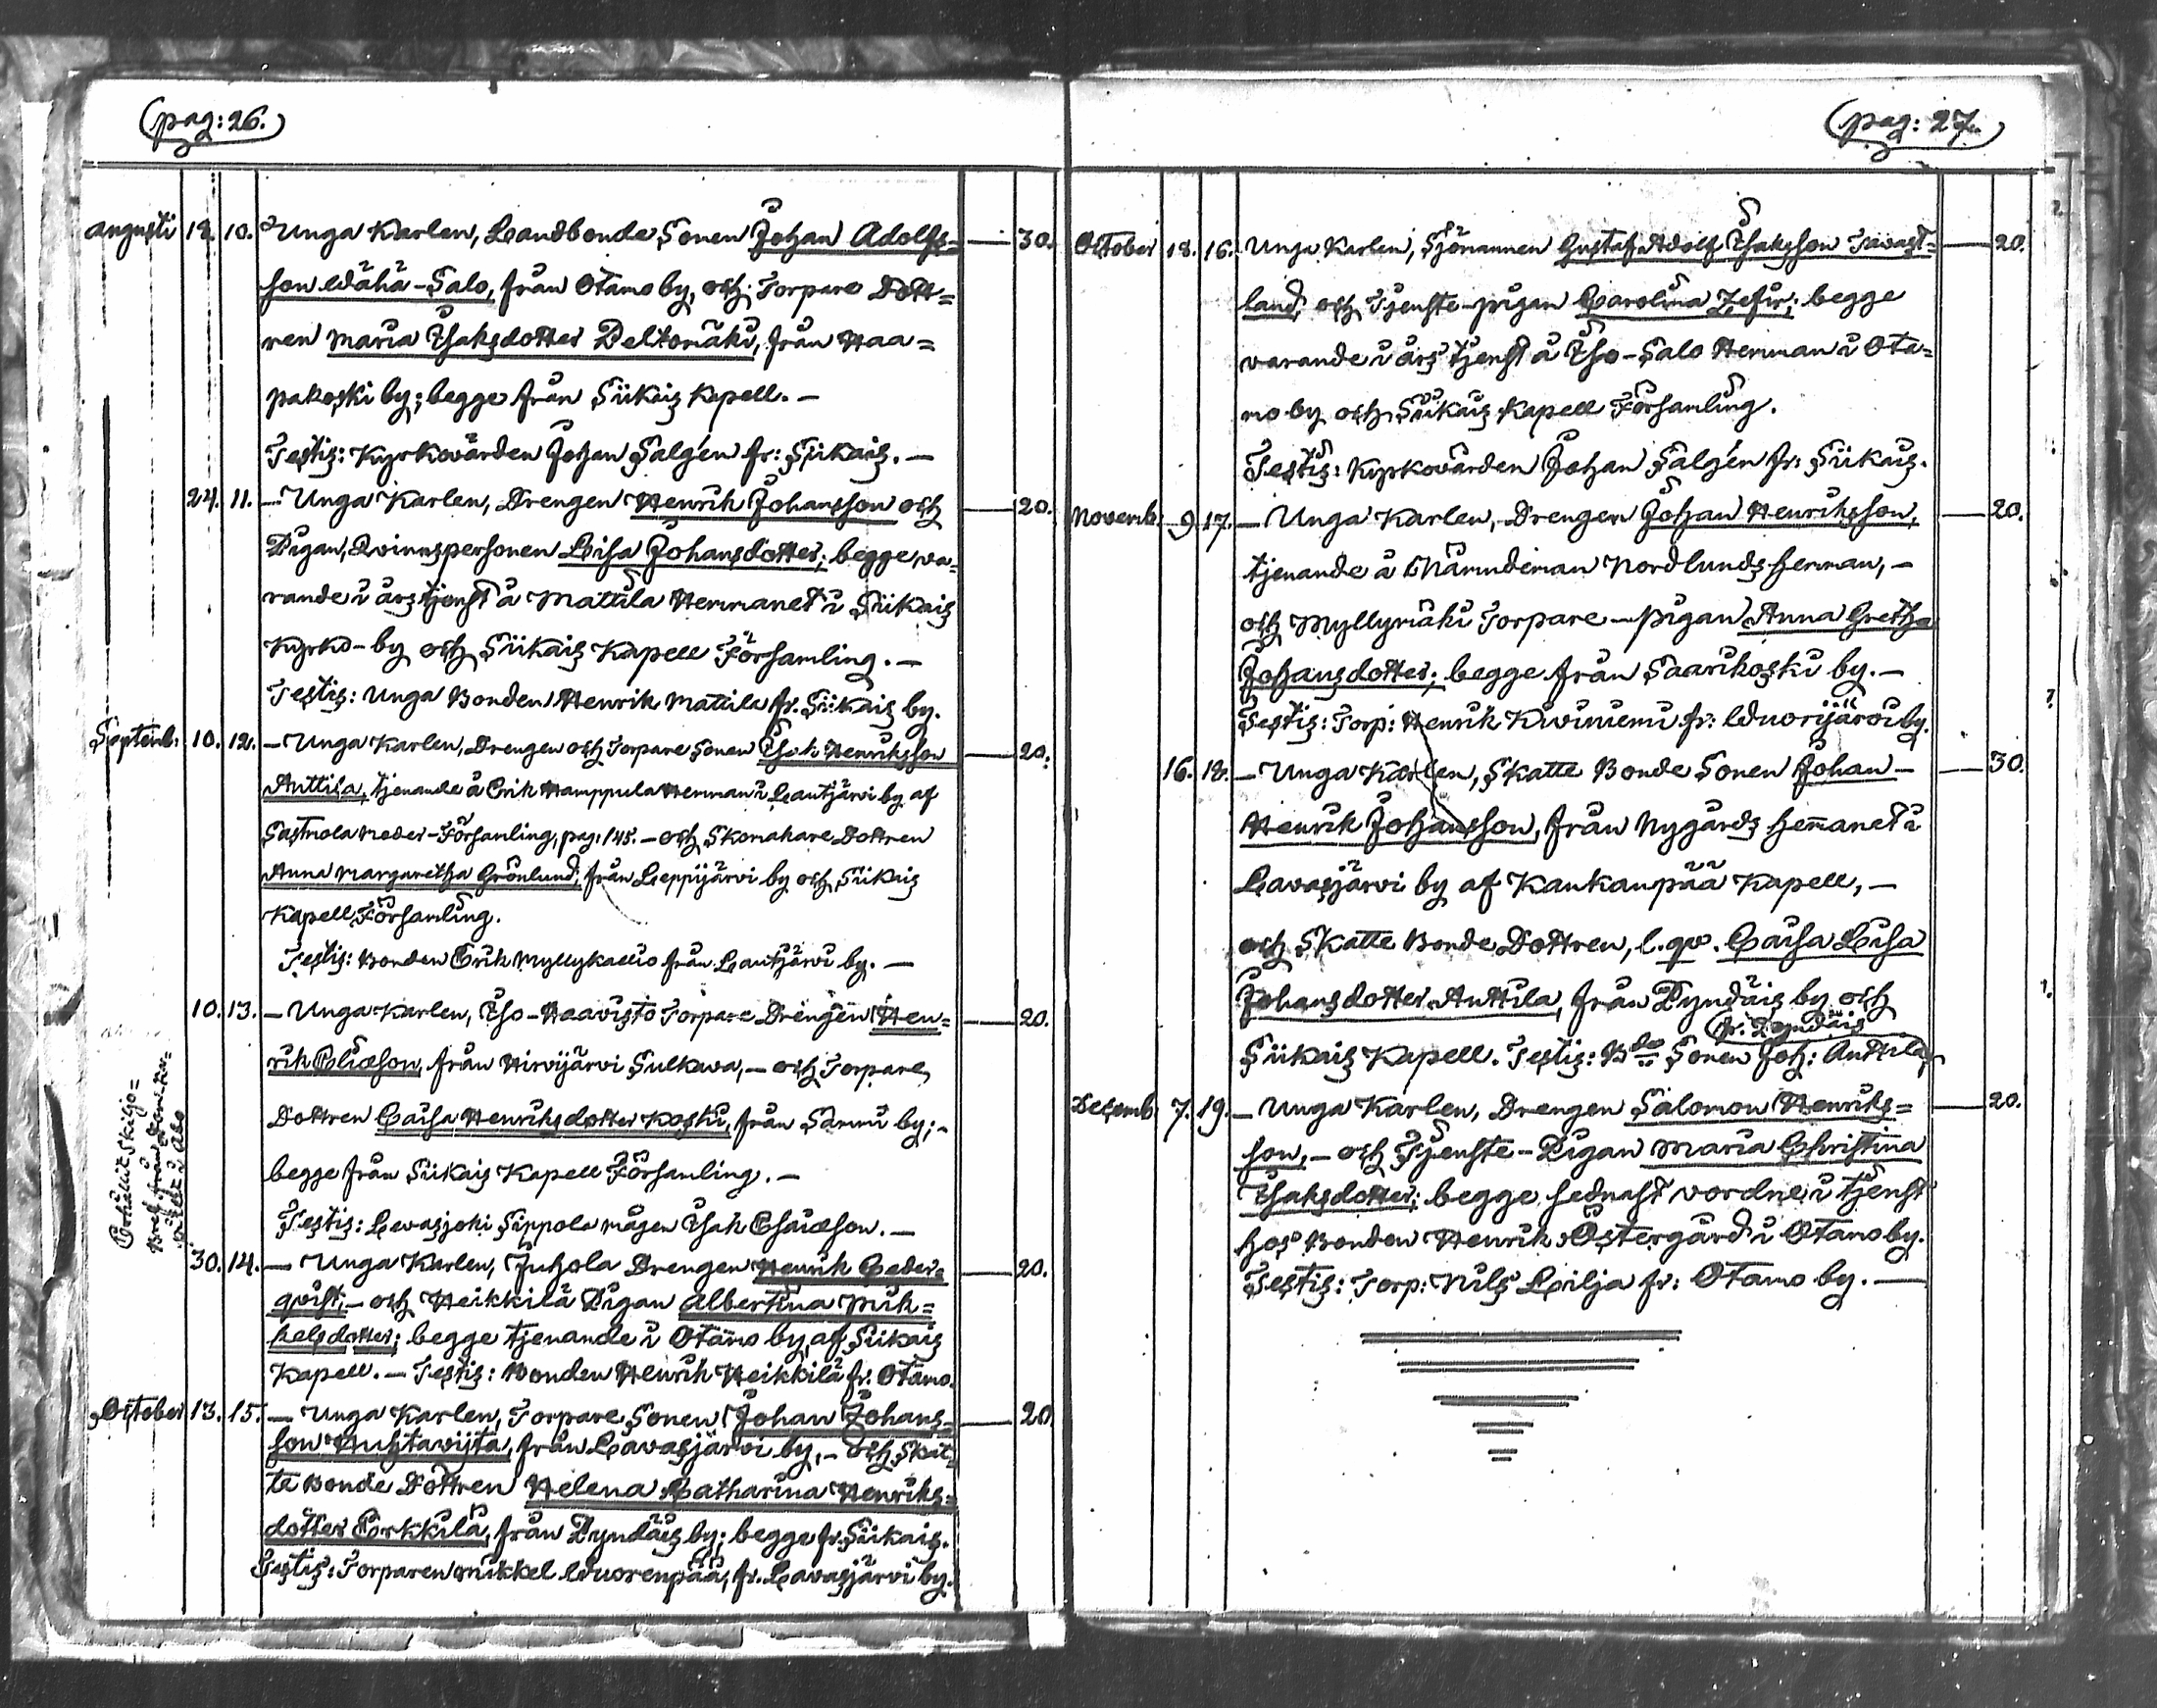 (pag: 26.)
Augusti 18. 10. Unga Karlen, Landbonde Sonen Johan Adolfs= — 30.
son Wähä-Salo, från Otamo by, och Torpare Dott=
ren Maria Isaksdotter Peltomäki, från Haa=
pakoski by; begge från Siikais Kapell. —
Testis: Kyrkovärden Johan Salgén fr: Siikais. —
24. 11. — Unga Karlen, Drengen Henrik Johansson och — 20.
Pigan, Qvinnspersonen Lisa Johansdotter; begge va=
rande i årstjenst å Mattila Hemmanet i Siikais
Kyrko-by och Siikais Kapell Församling. —
Testis: Unga Bonden Henrik Mattila fr. Siikais by.
Septemb: 10. 12. — Unga Karlen, Drengen och Torpare Sonen Isak Henriksson — 20.
Anttila, tjenande å Erik Hamppula Hemman i Lautjärvi by af
Sastmola Moder-Församling, pag. 145. — och Skomakare Dottren
Anna Margaretha Grönlund, från Leppijärvi by och Siikais
Kapell Församling.
Testis: Bonden Erik Myllykallio från Lautjärvi by. —
10. 13. — Unga Karlen, Iso-Haavisto Torpare Drengen Hen= — 20.
rik Eliæson, från Hirvijärvi Sulkava, — och Torpare
Dottren Caisa Henriksdotter Koski, från Sammi by; -
begge från Siikais Kapell Församling. —
Testis: Levasjoki Sippola mågen Isak Esaiæson. —
Erhållit Skiljo=
Bref från
i Åbo
30. 14. — Unga Karlen, Juhola Drengen Henrik Ceder= — 20.
qvist, — och Heikkilä Pigan Albertina Mik=
kelsdotter; begge tjenande i Otamo by, af Siikais
Kapell. — Testis: Bonden Henrik Heikkilä fr. Otamo.
October 13. 15. — Unga Karlen, Torpare Sonen Johan Johans= — 20
son, från Lavasjärvi by, — och Skat=
te Bonde Dottren Helena Catharina Henriks=
dotter Erkkilä, från Pyndäis by; begge fr. Siikais.
Testis: Torparen Mikkel Wuorenpää, fr. Lavasjärvi by.
(pag: 27.)
October 18. 16. Unga Karlen, Sjömannen Gustaf Adolf Isaksson Tavast= — 20.
land, och Tjenste-pigan Carolina Zefir; begge
varande i års tjenst å Iso-Salo Hemman i Ota=
mo by och Siikais Kapell Församling.
Testis: Kyrkovärden Johan Salgén fr: Siikais.
Novemb: 9. 17. — Unga Karlen, Drengen Johan Henriksson, — 20.
tjenande å Nämndeman Nordlunds hemman, —
och Myllymäki Torpare-pigan Anna Gretha
Johansdotter; begge från Saarikoski by. —
Testis: Torp: Henrik Kiviniemi fr: Wuorijärvi by.
16. 18. — Unga Karlen, Skatte Bonde Sonen Johan — — 30.
Henrik Johansson, från Nygårds hem̄anet i
Lavasjärvi by af Kankanpää Kapell, —
och Skatte Bonde Dottren, l. qv. Caisa Lisa
Johansdotter Anttila, från Pyndäis by och
Siikais Kapell. Testis: Bde Sonen Joh: Anttila,
fr. Pyndäis
Decemb: 7. 19. — Unga Karlen, Drengen Salomon Henriks= — 20.
son, — och Tjenste-Pigan Maria Christina
Isaksdotter; begge sednast vordne i tjenst
hos Bonden Henrik Östergård i Otamo by.
Testis: Torp: Nils Lilja fr: Otamo by. —